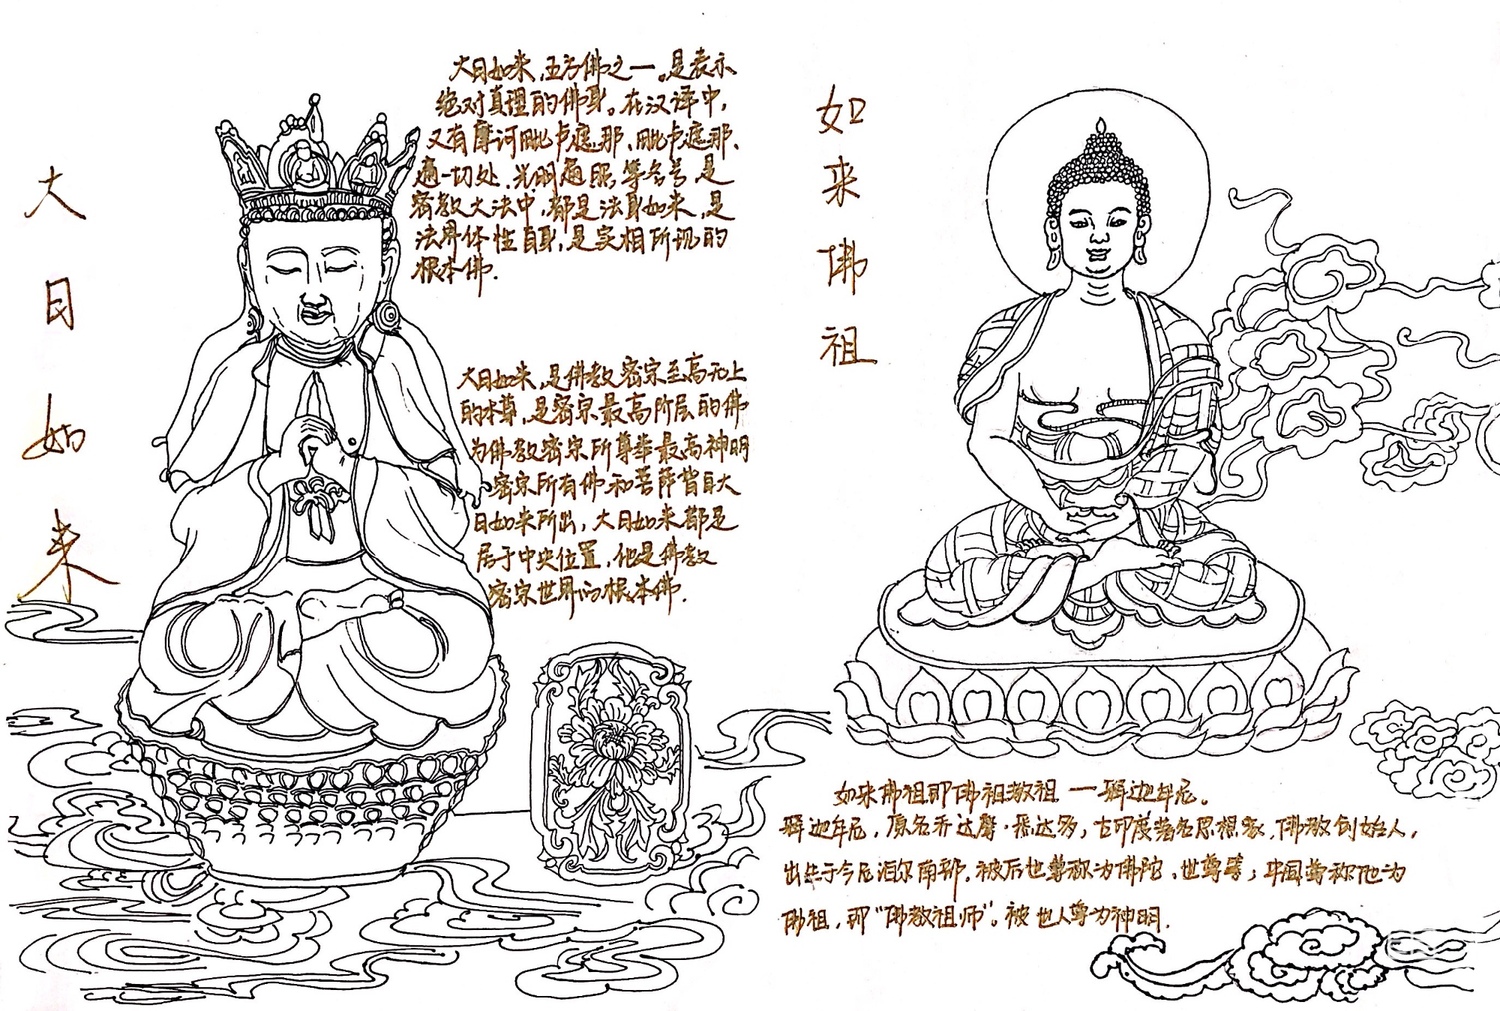 大日如来
大日如来，五方佛之一。是表示
绝对真理的佛身。在汉译中，
又有摩诃毗卢遮那、毗卢遮那、
遍一切处、光明遍照等名号，是
密教大法中，都是法身如来，是
法界体性自身，是实相所现的
根本佛．
大日如来，是佛教密宗至高无上
的本尊，是密宗最高阶层的佛
为佛教密宗所尊奉最高神明
密宗所有佛和菩萨皆自大
日如来所出，大日如来都是
居于中央位置，他是佛教
密宗世界的根本佛．
如来佛祖
如来佛祖即佛祖教祖一释迦牟尼。
释迦牟尼，原名乔达摩·悉达多，古印度著名思想家，佛教创始人，
出生于今尼泊尔南部，被后世尊称为佛陀、世尊等；中国尊称他为
佛祖，即“佛教祖师”。被世人尊为神明．